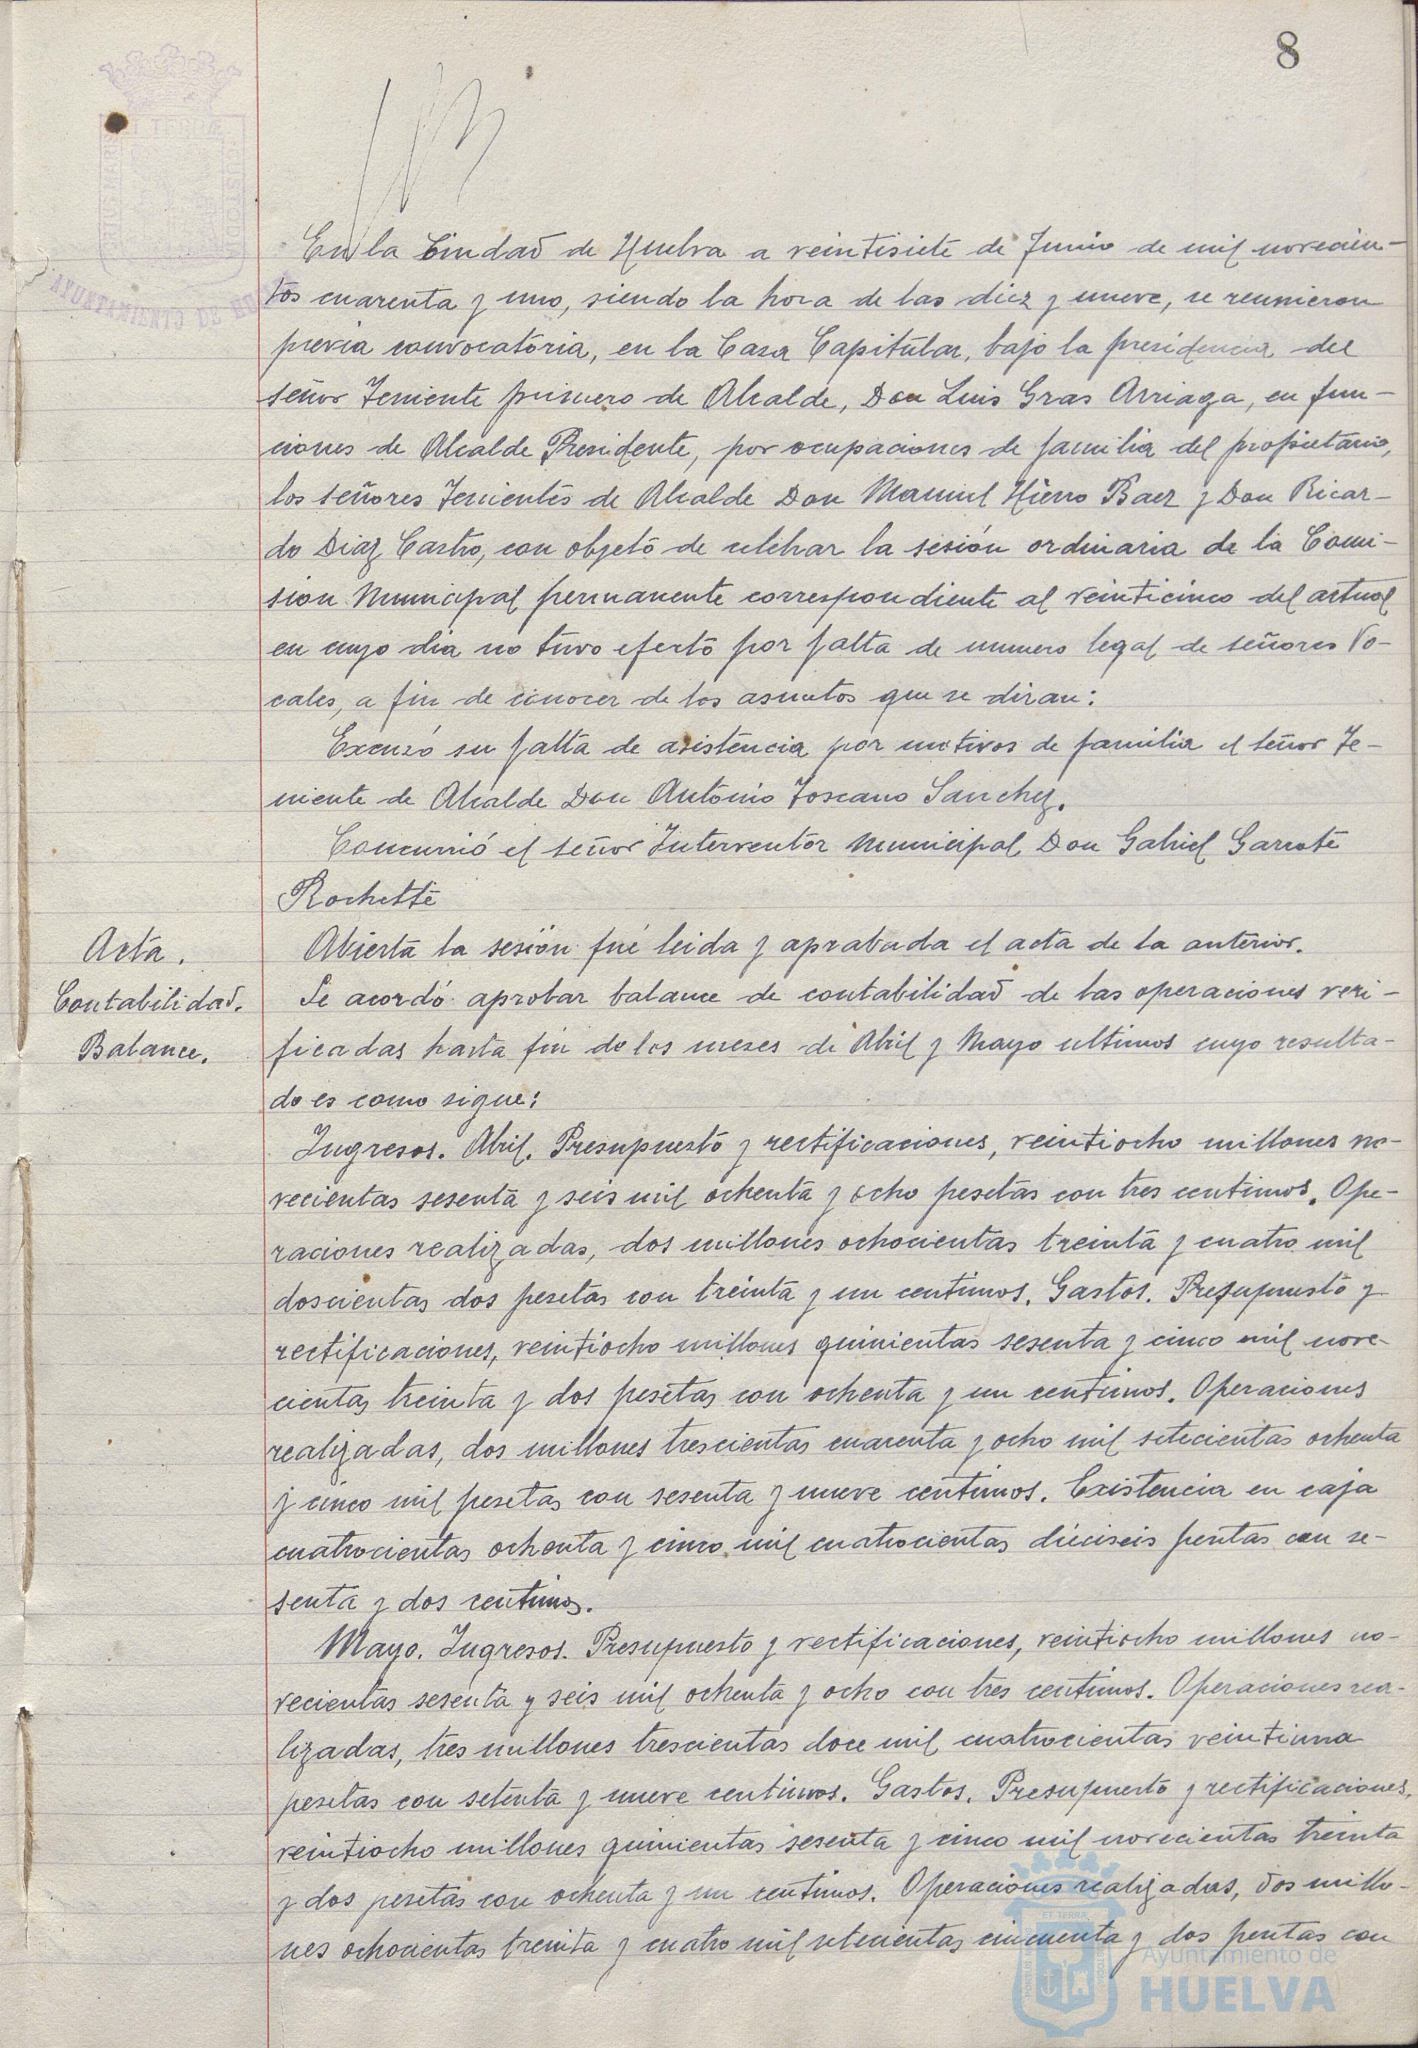 8
En la Ciudad de Huelva a veintisiete de Junio de mil novecien-
tos cuarenta y uno, siendo la hora de las diez y nueve, se reunieron
previa convocatoria, en la Casa Capitular, bajo la presidencia del
señor Teniente primero de Alcalde, Don Luis Gras Arriaga, en fun-
ciones de Alcalde Presidente, por ocupaciones de familia del propietario,
los señores Tenientes de Alcalde Don Manuel Hierro Baez y Don Ricar-
do Diaz Castro, con objeto de celebrar la sesión ordinaria de la Comi-
sion Municipal permanente correspondiente al veinticinco del actual
en cuyo dia no tuvo efecto por falta de numero legal de señores Vo-
cales, a fin de conocer de los asuntos que se diran:
Excusó su falta de asistencia por motivos de familia el señor Te-
niente de Alcalde Don Antonio Toscano Sanchez.
Concurrió el señor Interventor Municipal Don Gabriel Garrote
Rochette
Acta.
Abierta la sesión fué leida y aprobada el acta de la anterior.
Contabilidad.
Se acordó aprobar balance de contabilidad de las operaciones veri-
Balance.
ficadas hasta fin de los meses de Abril y Mayo ultimos cuyo resulta-
do es como sigue:
Ingresos. Abril. Presupuesto y rectificaciones, veintiocho millones no-
vecientas sesenta y seis mil ochenta y ocho pesetas con tres centimos. Ope-
raciones realizadas, dos millones ochocientas treinta y cuatro mil
doscientas dos pesetas con treinta y un centimos. Gastos. Presupuesto y
rectificaciones, veintiocho millones quinientas sesenta y cinco mil nove-
cientas treinta y dos pesetas con ochenta y un centimos. Operaciones
realizadas, dos millones trescientas cuarenta y ocho mil setecientas ochenta
y cinco mil pesetas con sesenta y nueve centimos. Existencia en caja
cuatrocientas ochenta y cinco mil cuatrocientas dieciseis pesetas con se-
senta y dos centimos.
Mayo. Ingresos. Presupuesto y rectificaciones, veintiocho millones no-
vecientas sesenta y seis mil ochenta y ocho con tres centimos. Operaciones rea-
lizadas, tres millones trescientas doce mil cuatrocientas veintiuna
pesetas con setenta y nueve centimos. Gastos. Presupuesto y rectificaciones,
veintiocho millones quinientas sesenta y cinco mil novecientas treinta
y dos pesetas con ochenta y un centimos. Operaciones realizadas, dos millo-
nes ochocientas treinta y cuatro mil setecientas cincuenta y dos pesetas con
AYUNTAMIENTO DE
Ayuntamiento de
HUELVA